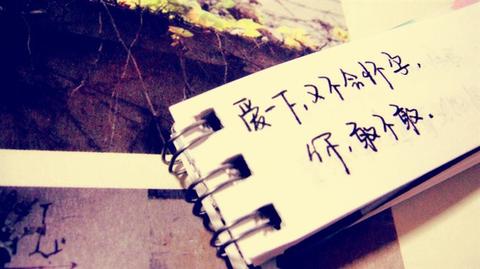 爱一下，又不会怀孕，
你，敢不敢．